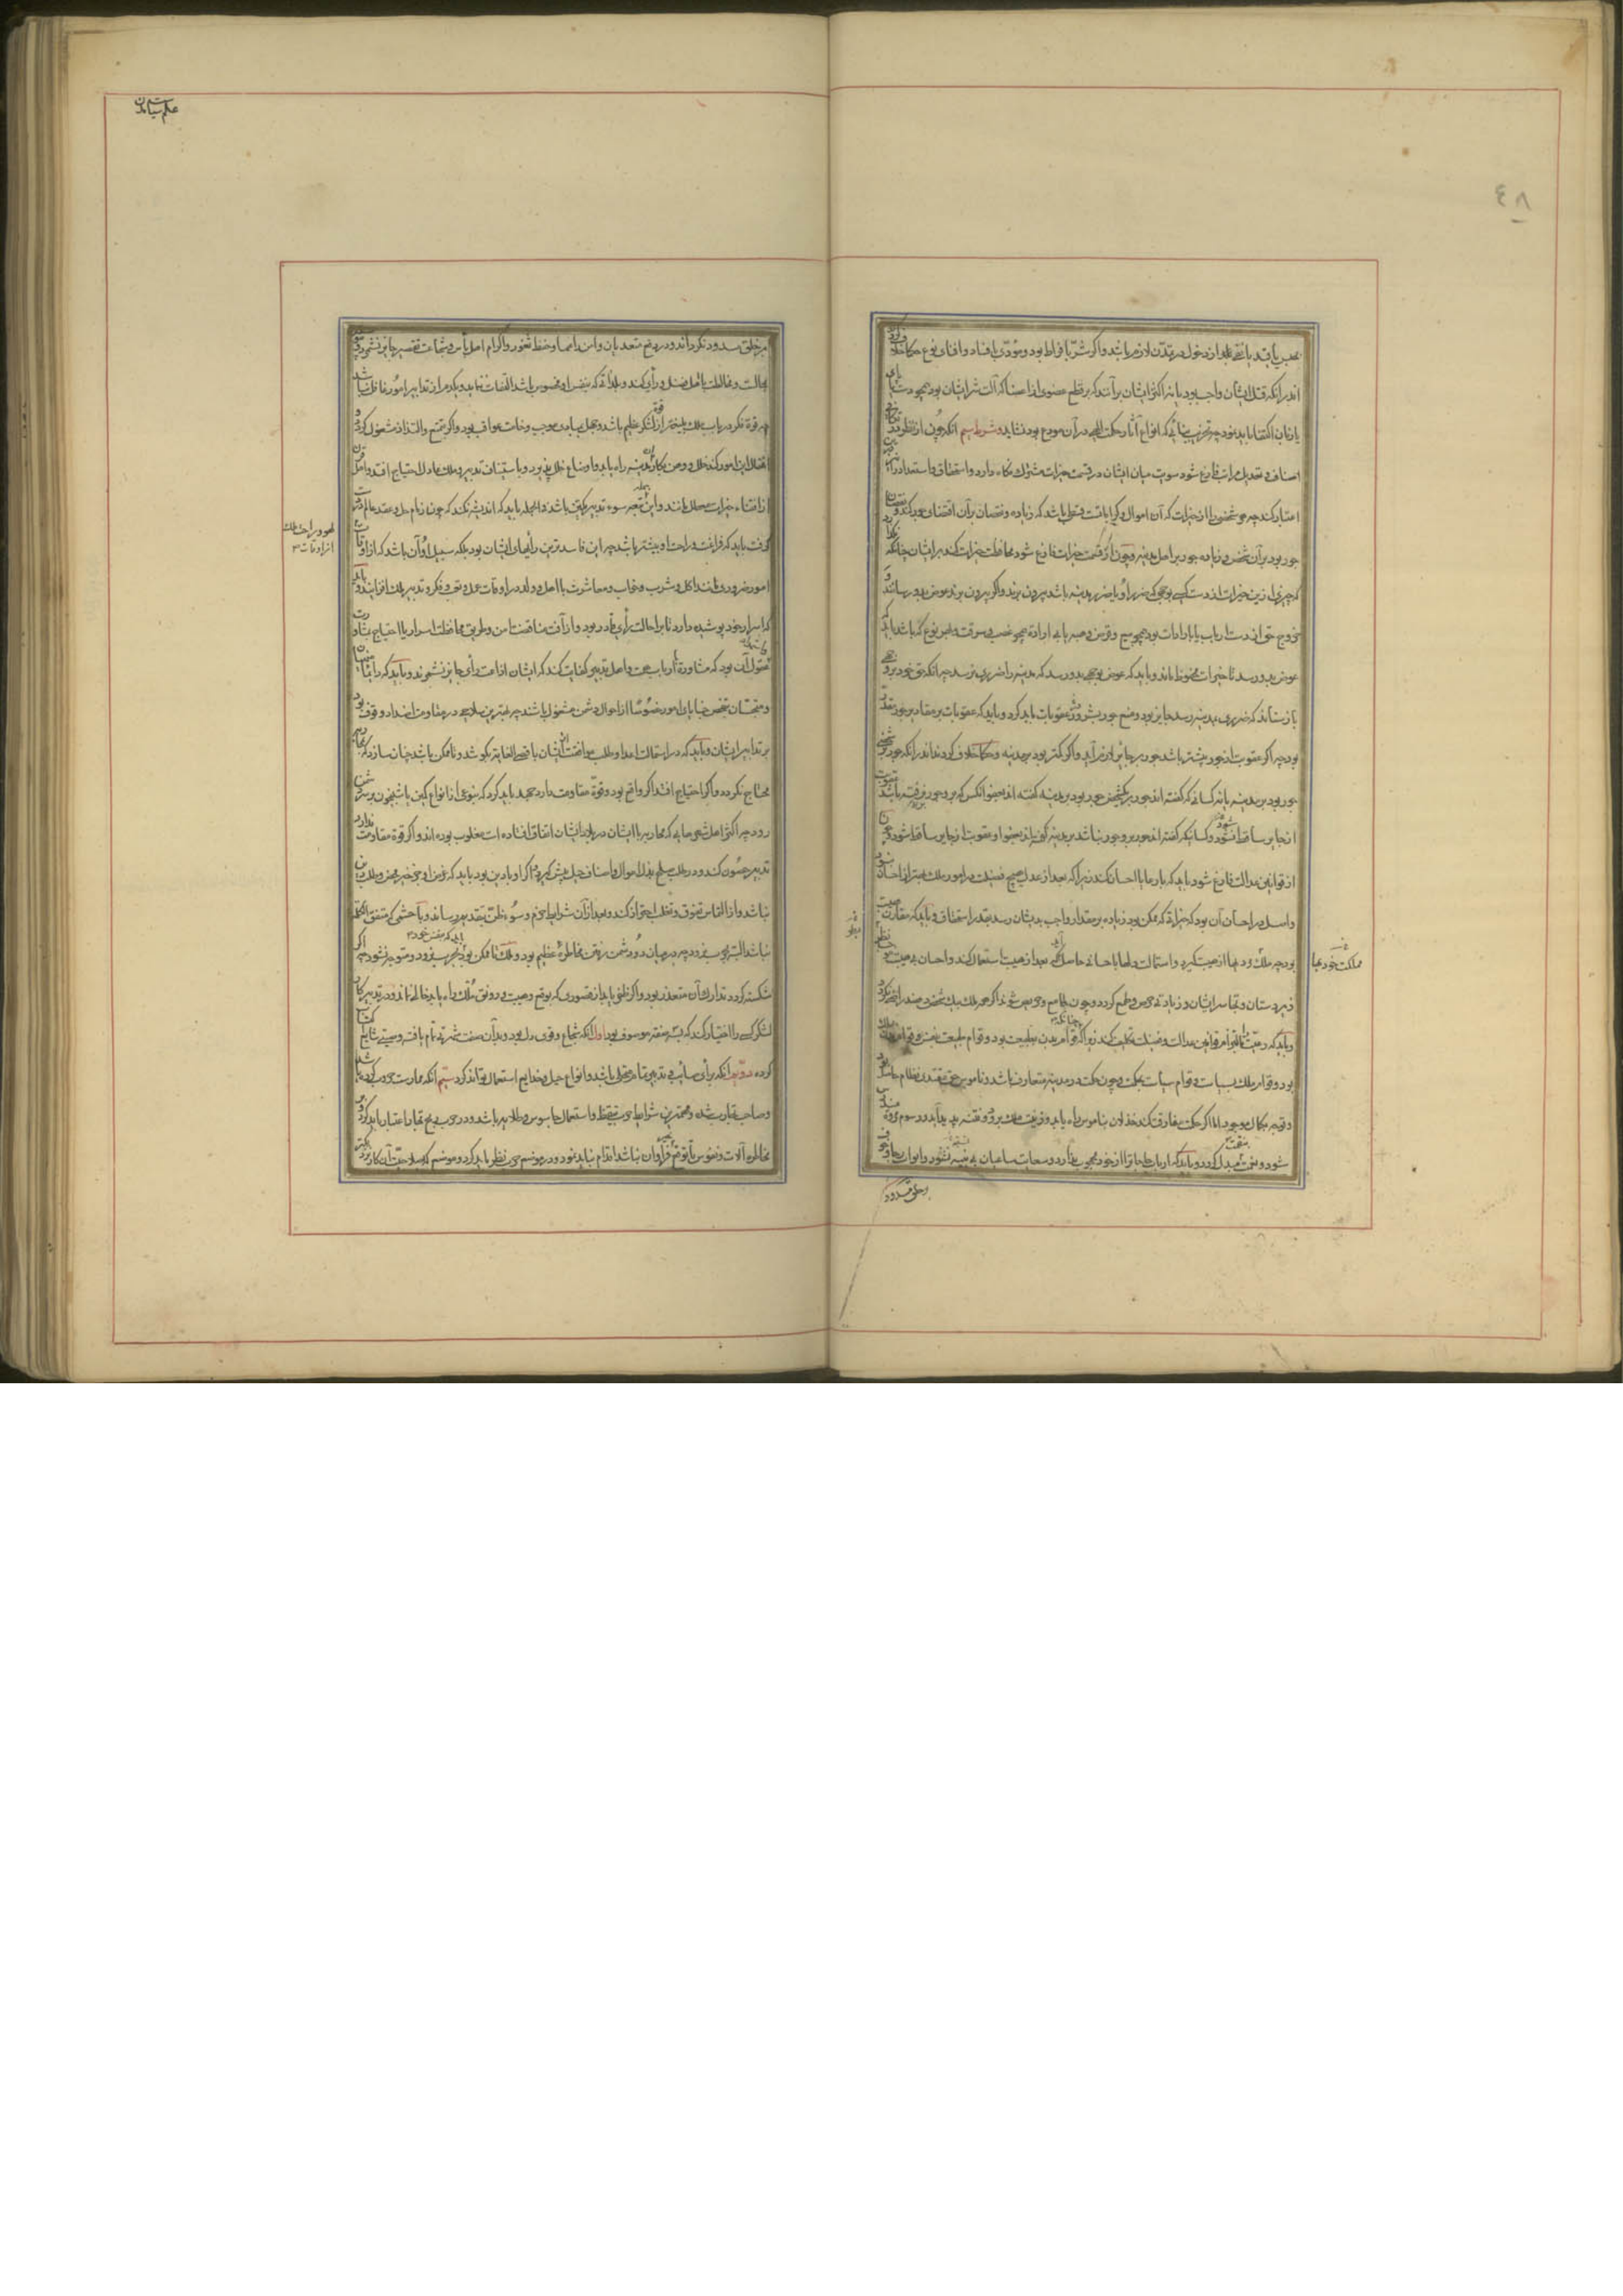 ٤٨
بحبس یا قید یا نفی بلد از دخول در تمدن لازم باشد و اگر شر با فراط بود و مؤدی با فناد و افنای نوع حکما خلاف کرده
اند در آنکه قتل ایشان واجب بود یا نه اکثر ایشان برآنند که بر قطع عضوی از اعضا که آلت شر ایشان بود همچو دست یا پای
یا زبان اکتفا باید نمود چه تخریب بنائی که انواع آثار حکمت الهی در آن مودع بود نشاید و شرط سیم آنکه چون از نظر در تکافی
اصناف و تعدیل مراتب فارغ شود سویت میان ایشان در قسمت خیرات مشترک نگاه دارد و استحقاق و استعداد را نیز
اعتبار کند چه هر شخصی را از خیرات که آن اموال و کرامات است قسطی باشد که زیاده و نقصان بر آن اقتضای جور کند و نقصان
جور بود بر آن شخص و زیاده جور بر اهل مدینه و چون از قسمت خیرات فارغ شود محافظت خیرات کند بر ایشان چنانکه نگذارد
که چیزی ازین خیرات از دست کسی بوجهی که ضرر او یا ضرر مدینه باشد بیرون برند و اگر بیرون برند عوض بدو رسانند و
خروج حق از دست ارباب یا بارادت بود همچو بیع و قرض و هبه یا بی اراده همچو غصب و سرقت و بهر نوع که باشد باید که
عوض بدو رسد تا خیرات محفوظ ماند و باید که عوض بوجهی بدو رسد که مدینه را ضرری نرسد چه آنکه حق خود بروجهی
باز ستاند که ضرری بمدینه رسد جایز بود و منع جور بشرور و عقوبات باید کرد و باید که عقوبات بر مقادیر جور مقدر
بود چه اگر عقوبت از جور بیشتر باشد جور بر جایر لازم آید و اگر کمتر بود بر مدینه و حکما خلاف کرده‌اند در آنکه جور بر شخصی
جور بود بر مدینه یا نه کسانی که گفته‌اند جور بر یک شخص جور بود بر مدینه گفته‌اند بعفو آنکس که بر و جور رفته باشد عقوبت
از جایر ساقط نشود و کسانی که گفته‌اند جور بر و جور نباشد بر مدینه گویند بعفو او عقوبت از جایر ساقط شود و چون
از قوانین عدالت فارغ شود باید که با رعایا احسان کند زیرا که بعد از عدل هیچ فضیلت در امور ملک بهتر از احسان نبود
و اصل در احسان آن بود که خیراتی که ممکن بود زیاده بر مقدار واجب بدیشان رسد بقدر استحقاق و باید که مقارن هیبت
بود چه ملک و بها از هیبت گیرد و استمالت دلها باحسانی حاصل آید که بعد از هیبت استعمال کند و احسان بی هیبت موجب بطر
زیردستان و تجاسر ایشان و زیادتی حرص و طمع گردد و چون طامع و حریص شوند اگر همه ملک بیک شخص دهند راضی نگردد
و باید که رعیت را بالتزام قوانین عدالت و فضیلت تکلیف کند زیرا که چنانکه قوام بدن بطبیعت بود و قوام طبیعت بنفس و قوام
بود و قوام ملک بسیاست و قوام سیاست بحکمت و چون حکمت در مدینه متعارف باشد و ناموس حق مقتدی نظام حاصل بود
و توجه بکمال موجود اما اگر حکمت مفارقت کند خذلان بناموس راه یابد و زینت ملک برود و فتنه پدید آید و رسوم مروت مندرس
شود و نعمت بنقمت مبدل گردد و باید که ارباب حاجات را از خود محجوب ندارد و سعایت ساعیان بی بینه نشنود و ابواب رجا و خوف
مملکت خود بها
بر خلق مسدود
علم سیاست مدن
بر خلق مسدود نگرداند و در دفع متعدیان و امن راهها و حفظ ثغور و اکرام اهل بأس و شجاعت تقصیر جایز نشمرد و
مجالست و مخالطت با اهل فضل و رأی کند و بلذاتی که بنفس او مخصوص باشد التفات ننماید و یکدم از تدابیر امور غافل نباشد
چه قوة فکر در باب ملک بلیغتر از قوة لشکر عظیم باشد و جهل بمبادی موجب وخامت عواقب بود و اگر بتمتع و التذاذ مشغول گردد و
اغفال این امور کند خلل و وهن بکار مدینه راه یابد و اوضاع خلل پذیرد و باستیناف تدبیر و ملک عادل احتیاج افتد و اهل آن قرن
از اقتناء خیرات معطل مانند و این جمله نتیجه سوء تدبیر یک تن باشد و بالجمله باید که اندیشه نکند که چون زمام حل و عقد عالم در دست
گرفت باید که فراغت و راحت او بیشتر باشد چه این فاسدترین رأیهای ایشان بود بلکه سبیل او آن باشد که از اوقات
امور ضروری مانند اکل و شرب و خواب و معاشرت با اهل و ولد در اوقات عمل و تعب و فکر و تدبیر ملک افزایند و باید
که اسرار خود پوشیده دارد تا بر احالت رأی قادر بود و از آفت مناقضت ایمن و طریق محافظت اسرار با احتیاج بمشاورت
عقول آن بود که مشاورة با ارباب همت و اهل تدبیر کفایت کند که ایشان اذاعت رأی جایز نشمرند و باید که دایما منهیان
و متجسسان بتفحص خبایای امور خصوصا از احوال دشمن مشغول باشند چه بهترین سلاحی در مقاومت اضداد وقوف بود
بر تدابیر ایشان و باید که در استمالت اعدا و طلب موافقت ایشان باقصی الغایة بکوشد و تا ممکن باشد چنان سازد که بمحاربه
محتاج نگردد و اگر احتیاج افتد اگر واقع بود و قوة مقاومت دارد جهد باید کرد که بنوعی از انواع کمین یا شبیخون بر سر دشمن
رود چه اکثر اهل شهرهایی که محاربه با ایشان در بلاد ایشان اتفاق افتاده است مغلوب بوده‌اند و اگر قوة مقاومت ندارد
تدبیر حصون کند و در طلب صلح بذل اموال و اصناف حیل پیش گیرد و اگر او بادی بود باید که غرض او جز خیر محض و طلب دین
نباشد و از التماس تفوق و تغلب احتراز کند و بعد از آن شرایط حزم و سوء ظن بتقدیم رساند و با حشمی که متفق الکلمه
نباشد البته بحرب نرود چه در میان دو دشمن رفتن مخاطره عظیم بود و ملک تا ممکن بود باید که بنفس خود بحرب نرود و متوجه نشود چه اگر
شکسته گردد تدارک آن متعذر بود و اگر ظفر یابد از قصوری که بوقع و هیبت و رونق ملک راه یابد خالی نماند و در تدبیر کار
لشکر کسی را اختیار کند که بسه صفت موصوف بود اول آنکه شجاع و قوی دل بود و بدان صفت شهرتی تمام یافته و صیتی شایع
کرده دویم آنکه برأی صایب و تدبیر تمام متحلی باشد و انواع حیل و خدایع استعمال تواند کرد سیم آنکه ممارست حروب کرده باشد
و صاحب تجارب شده و مهمترین شرایط حرب تیقظ و استعمال جاسوس و طلایه باشد و در حرب ربح تجارت اعتبار باید کرد و
مخاطره آلات و نفوس تا توقع ربح فراوان نباشد اقدام نباید نمود و در موضع حرب نظر باید کرد و موضعی که صلاحیت آن کار
لهو و راحت ملک
از اوقات